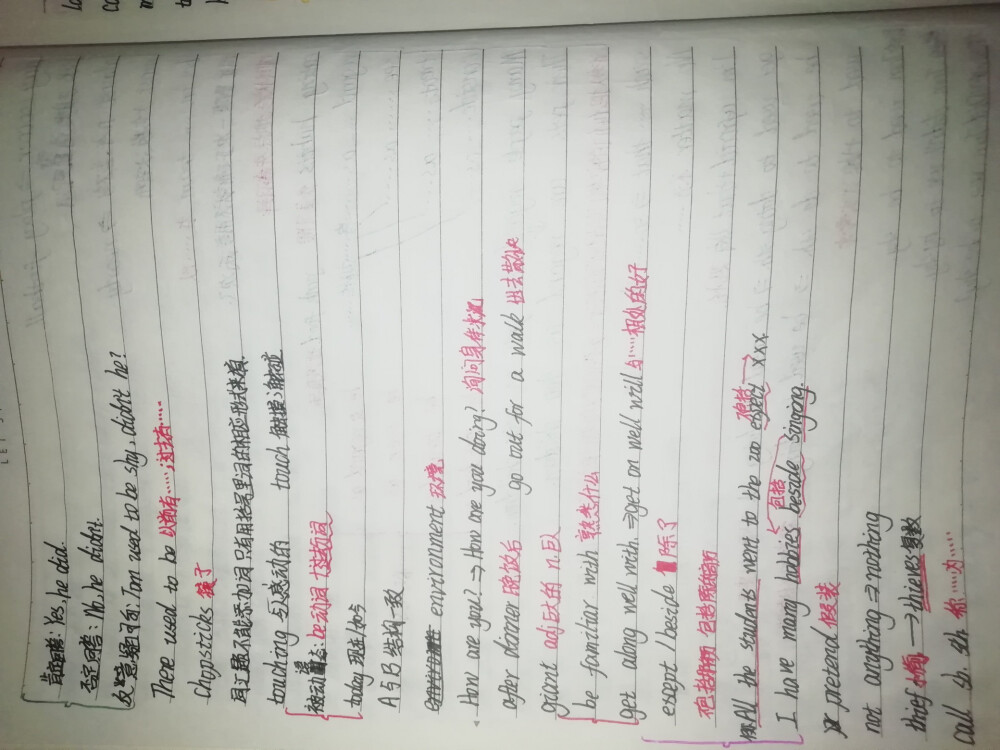 肯定回答: Yes, he did.
否定回答: No, he didn't.
反意疑问句: Tom used to be shy, didn't he?
There used to be 以前有……;过去有……
Chopsticks 筷子
同过题不能添加词只有用括号里词的相应形式来填
touching 令人感动的 touch 触摸;触碰
被动语态: be动词+过去分词
today 现在的
A与B 结构一致
environment 环境
How are you? ⇒ How are you doing? 询问身体状况
after danner 晚饭后 go out for a walk 出去散步
giant adj巨大的 n.巨人
be familiar with 熟悉什么
get along well with. ⇒ get on well will 与……相处的好
escept / beside 除了
包括 包括所有的
All the students went to the zoo escept xxx 包括
I have many habbies beside singing. 包括
pretend 假装
not angthing ⇒ nothing
thief 小偷 → thieves 复数
call sb. sth 称……为……